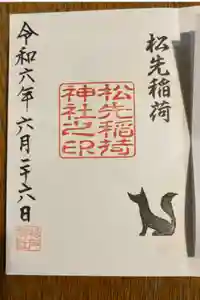 松先稲荷
松先稲荷
神社之印
令和六年六月二十六日